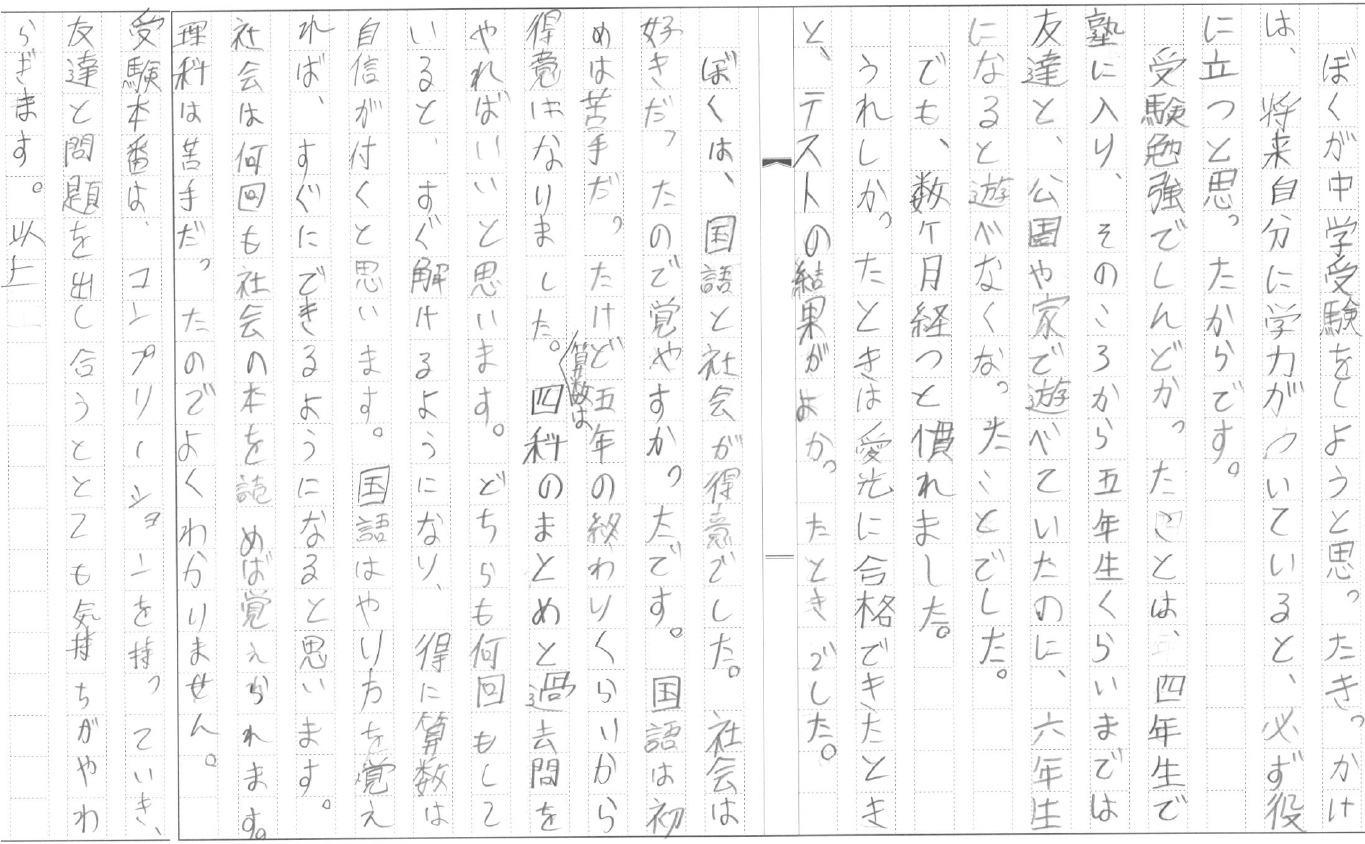 ぼくが中学受験をしようと思ったきっかけ
は、将来自分に学力がついていると、必ず役
に立つと思ったからです。
受験勉強でしんどかったことは、四年生で
塾に入り、そのころから五年生くらいまでは
友達と、公園や家で遊べていたのに、六年生
になると遊べなくなったことでした。
でも、数ヶ月経つと慣れました。
うれしかったときは愛光に合格できたとき
と、テストの結果がよかったときでした。
ぼくは、国語と社会が得意でした。社会は
好きだったので覚やすかったです。国語は初
めは苦手だったけど五年の終わりくらいから
得意はなりました。算数は、四科のまとめと過去問を
やればいいと思います。どちらも何回もして
いると、すぐ解けるようになり、得に算数は
自信が付くと思います。国語はやり方を覚え
れば、すぐにできるようになると思います。
社会は何回も社会の本を読めば覚えられます。
理科は苦手だったのでよくわかりません。
受験本番は、コンプリーションを持っていき、
友達と問題を出し合うととても気持ちがやわ
らぎます。以上